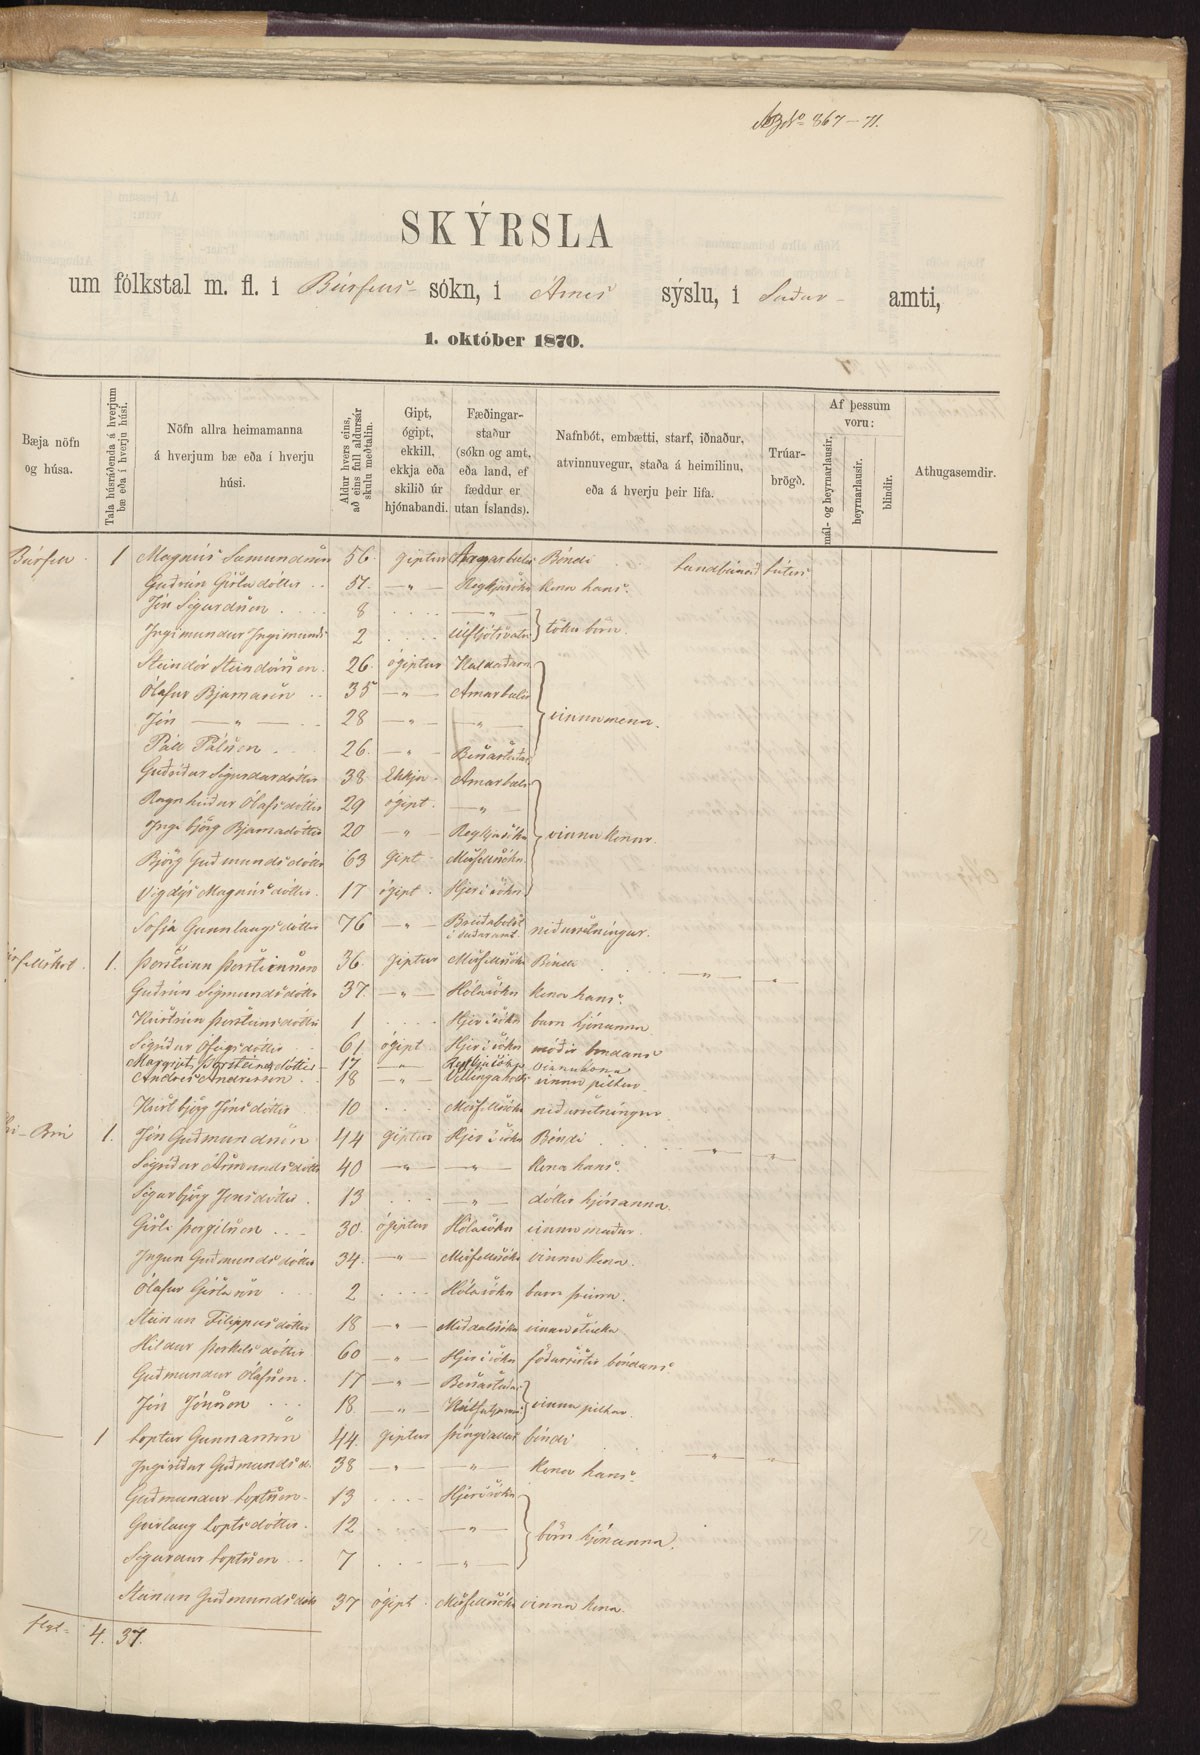 No 867–71.
SKÝRSLA
um fólkstal m. fl. i Búrfells- sókn, i Árnes sýslu, i Suður- amti,
1. október 1870.
Bæja nöfn og húsa.
Tala húsráðenda á hverjum bæ eða í hverju húsi.
Nöfn allra heimamanna á hverjum bæ eða í hverju húsi.
Aldur hvers eins, að eins full aldursár skulu meðtalin.
Gipt, ógipt, ekkill, ekkja eða skilið úr hjónabandi.
Fæðingar-staður (sókn og amt, eða land, ef fæddur er utan Íslands).
Nafnbót, embætti, starf, iðnaður, atvinnuvegur, staða á heimilinu, eða á hverju þeir lifa.
Trúar-brögð.
Af þessum voru:
mál- og heyrnarlausir.
heyrnarlausir.
blindir.
Athugasemdir.
Búrfell 1 Magnús Sæmundsson 56. giptur Bóndi
Guðrún Gísladóttir 57. — „ — Reykjasókn kona hans.
Jón Sigurðsson 8 — „ —
Ingimundur Ingimunds 2 Úlfljótsvatns töku börn.
Steindór Steindórsson. 26. ógiptur Kaldaðarn
Ólafur Bjarnason 35 — „ — Arnarbælis
Jón — „ — 28 — „ — — „ — vinnumenn.
Páll Pálsson 26. — „ — Bessastaða
Guðríður Sigurðardóttir 38 Ekkja Arnarbælis
Ragnhildur Ólafsdóttir 29 ógipt. — „ —
Ingibjörg Bjarnadóttir 20 — „ — Reykjasókn vinnu konur.
Björg Guðmundsdóttir 63 gipt Mosfellssókn
Vigdís Magnúsdóttir. 17 ógipt. Hjer i sókn
Sofía Gunnlaugsdóttir 76 — „ — Breiðabólst i suðuramt. niðursetningur.
1. Þorsteinn Þorsteinsson 36. giptur Mosfellssókn Bóndi — „ — „
Guðrún Sigmundsdóttir 37. — „ — Hólasókn kona hans.
Kristrún Þorsteinsdóttir 1 Hjer i sókn barn hjónanna
Sigríður dóttir 61. ógipt Hjer i sókn móðir bóndans
Margrjet Þorsteinsdóttir 17 — „ — vinnukona
Andres Andresson. 18 — „ — Villingaholts vinnu piltur
Kristbjörg Jónsdóttir 10 Mosfellssókn niðursetningur
1. Jón Guðmundsson 44 giptur Hjer i sókn Bóndi „ „
Sigríður Ásmundsdóttir 40 — „ — — „ — kona hans.
Sigurbjörg Jónsdóttir. 13 — „ — dóttir hjónanna.
Gísli Þorgilsson 30. ógiptur Hólasókn vinnu maður.
Ingun Guðmundsdóttir 34. — „ — Mosfellssókn vinnu kona.
Ólafur Gíslason 2 Hólasókn barn þeirra.
Steinun Filippusdóttir 18 — „ — Miðdalssókn vinnustúlka
Hildur Þorkelsdóttir 60 — „ — Hjer i sókn föðursystir bóndans
Guðmundur Ólafsson. 17 — „ — Bessastaða
Jón Jónsson 18 — „ — vinnu piltar.
1 Loptur Gunnarsson 44. giptur Þingvalla bóndi „ „
Ingiríður Guðmundsd. 38 — „ — — „ — kona hans.
Guðmundur Loptsson 13 Hjer i sókn
Geirlaug Loptsdóttir. 12 — „ — börn hjónanna.
Sigurður Loptsson 7 — „ —
Steinun Guðmundsdóttir 37 ógipt Mosfellssókn vinnu kona.
flyt= 4. 37.